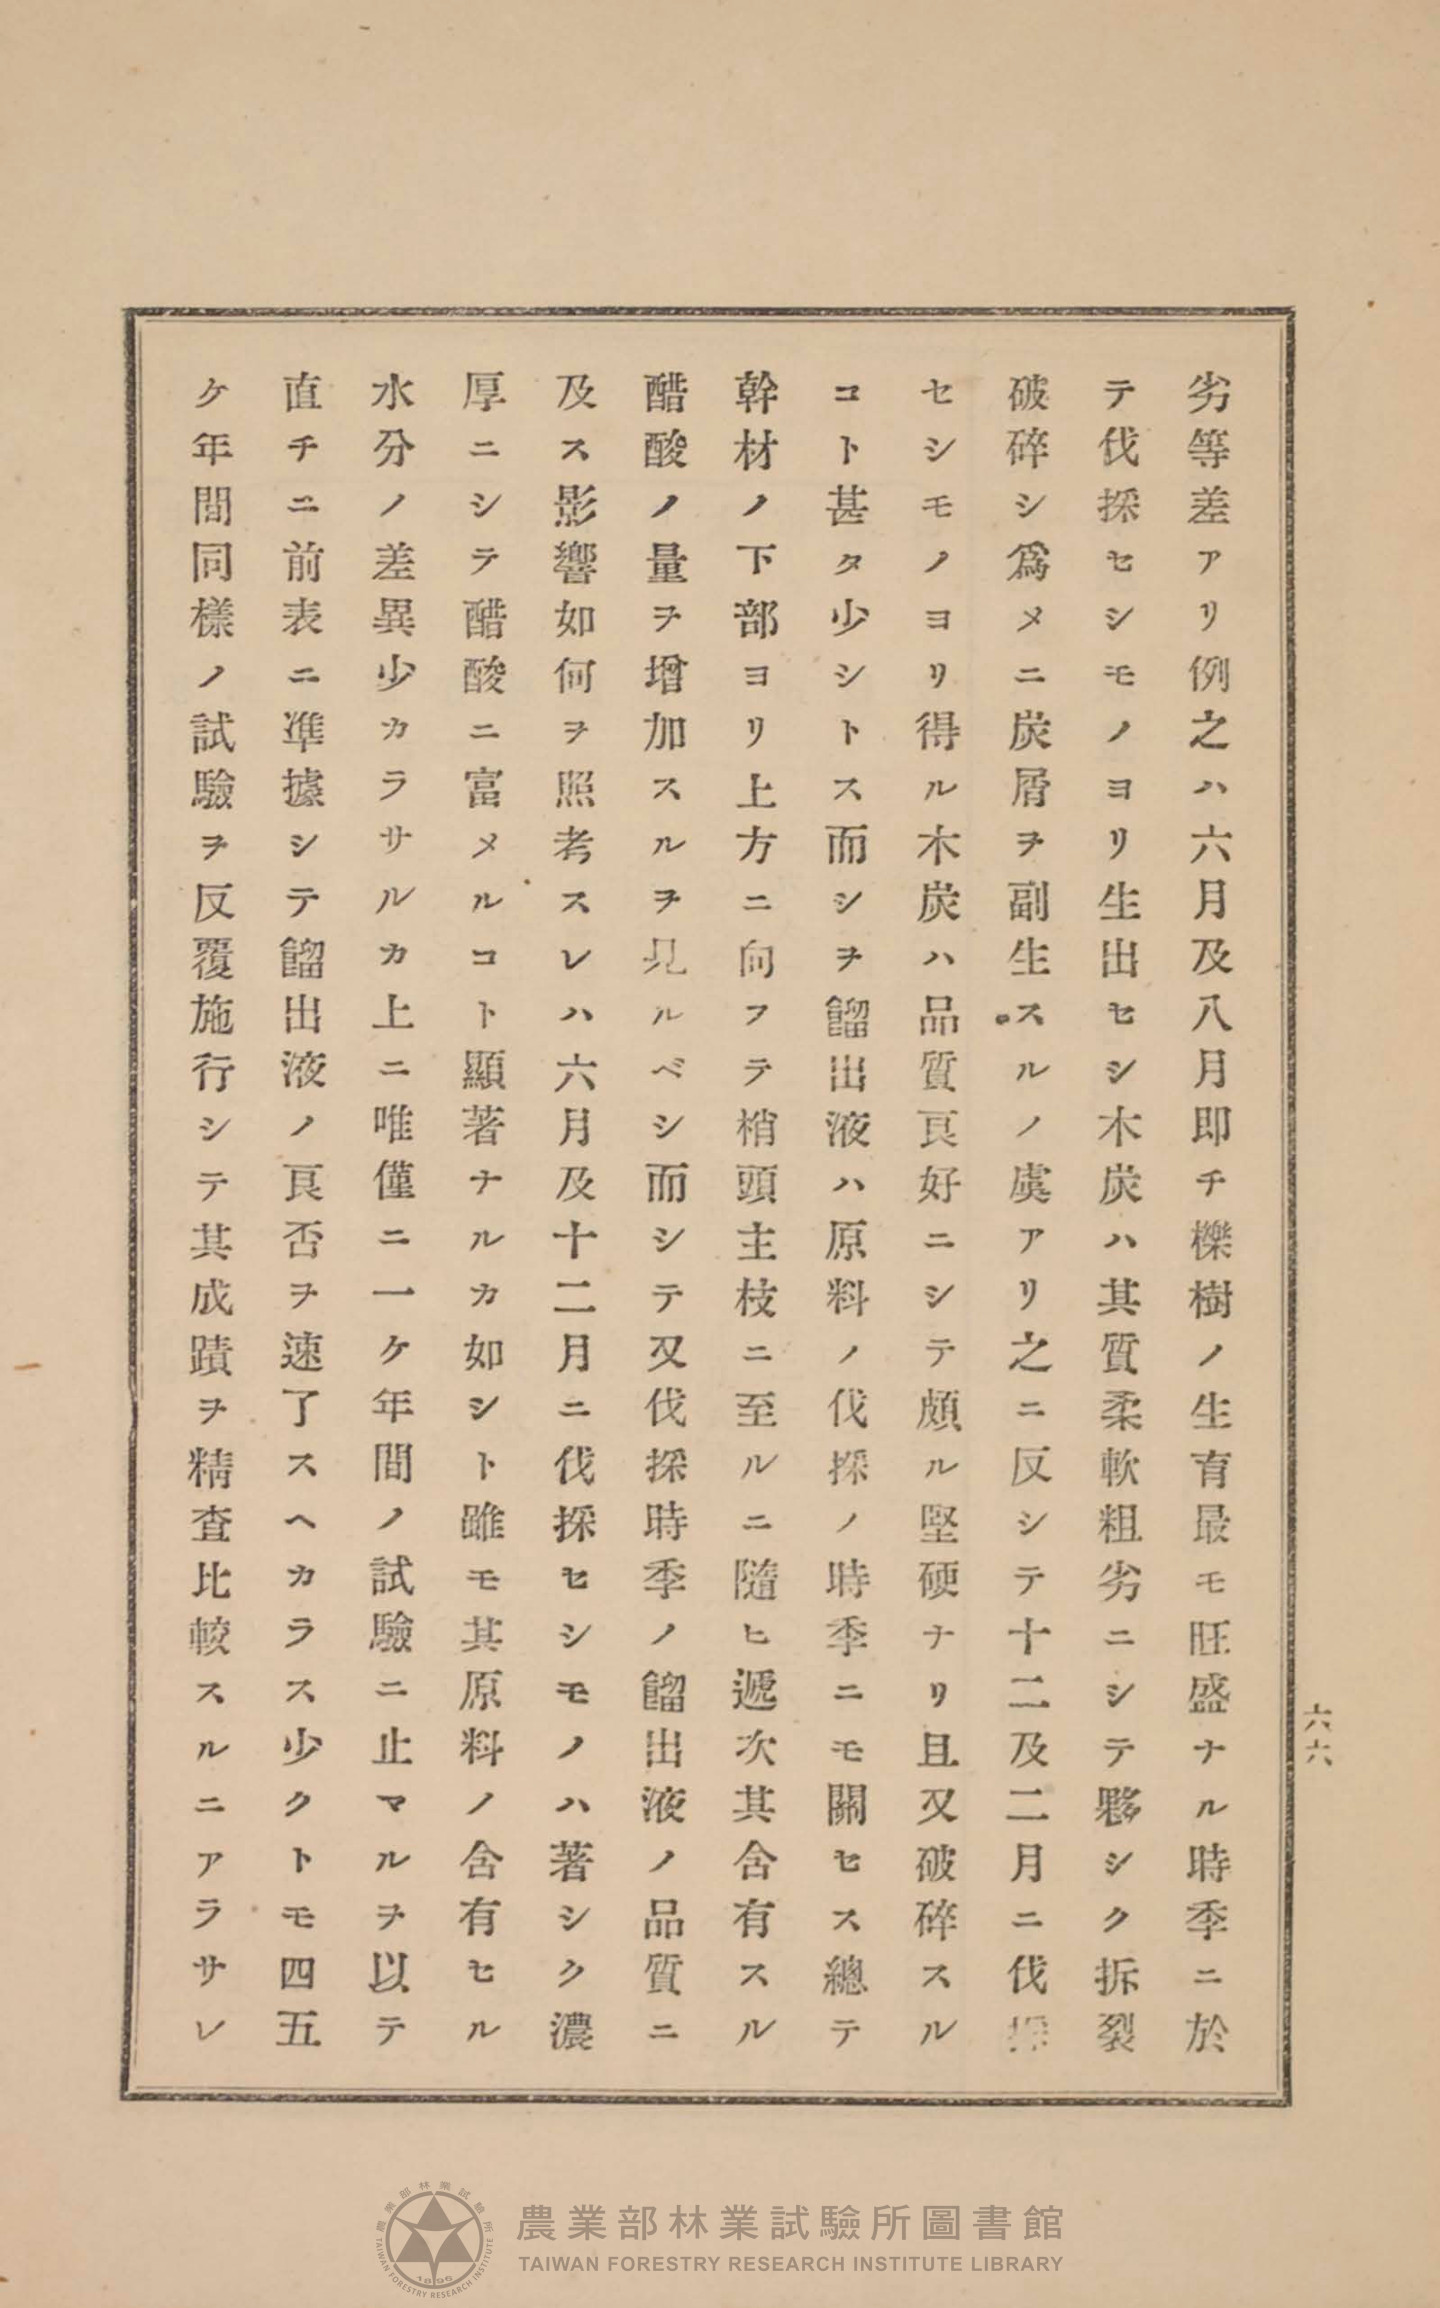 劣等差アリ例之ハ六月及八月即チ櫟樹ノ生育最モ旺盛ナル時季ニ於
テ伐採セシモノヨリ生出セシ木炭ハ其質柔軟粗劣ニシテ夥シク拆裂
破碎シ爲メニ炭屑ヲ副生スルノ虞アリ之ニ反シテ十二及二月ニ伐採
セシモノヨリ得ル木炭ハ品質良好ニシテ頗ル堅硬ナリ且又破碎スル
コト甚タ少シトス而シヲ餾出液ハ原料ノ伐採ノ時季ニモ關セス總テ
幹材ノ下部ヨリ上方ニ向フテ梢頭主枝ニ至ルニ隨ヒ遞次其含有スル
醋酸ノ量ヲ增加スルヲ見ルベシ而シテ又伐採時季ノ餾出液ノ品質ニ
及ス影響如何ヲ照考スレハ六月及十二月ニ伐採セシモノハ著シク濃
厚ニシテ醋酸ニ富メルコト顯著ナルカ如シト雖モ其原料ノ含有セル
水分ノ差異少カラサルカ上ニ唯僅ニ一ケ年間ノ試驗ニ止マルヲ以テ
直チニ前表ニ準據シテ餾出液ノ良否ヲ速了スヘカラス少クトモ四五
ケ年間同樣ノ試驗ヲ反覆施行シテ其成蹟ヲ精查比較スルニアラサレ
六六
農業部林業試驗所圖書館
TAIWAN FORESTRY RESEARCH INSTITUTE LIBRARY
農業部林業試驗所
TAIWAN FORESTRY RESEARCH INSTITUTE
1896